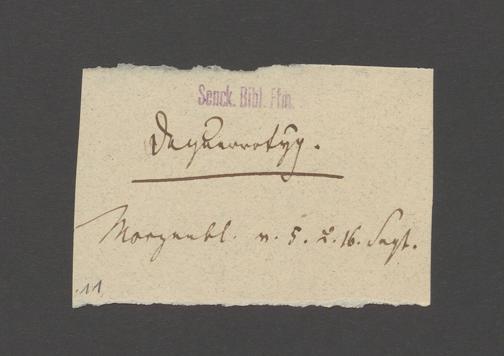 Senck. Bibl. Ffm.
Daguerrotyp.
Morgenbl. v. 5. u. 16. Sept.
11